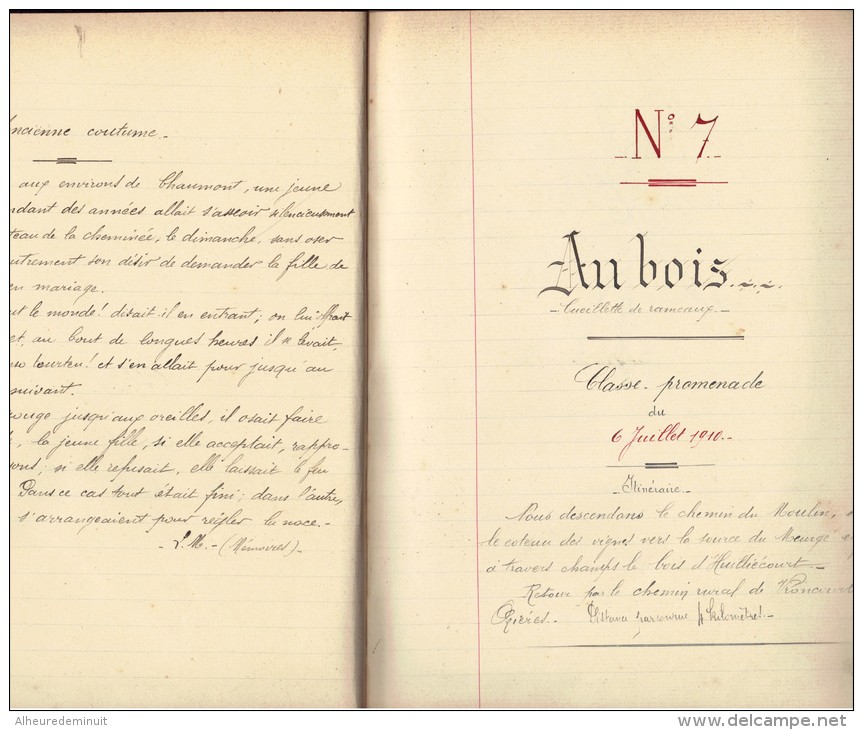 ncienne coutume.-
aux environs de Chaumont, une jeune
ndant des années allait s'asseoir silencieusement
teau de la cheminée, le dimanche, sans oser
utrement son désir de demander la fille de
en mariage.
ut le monde! disait-il en entrant; on lui offrait
et, au bout de longues heures il se levait,
tourteu! et s'en allait pour jusqu'au
suivant.
rouge jusqu'aux oreilles, il osait faire
la jeune fille, si elle acceptait, rappro-
sons; si elle refusait, elle laissait le feu
Dans ce cas tout était fini; dans l'autre,
s'arrangeaient pour régler la noce.-
- L. M. - (Mémoires)-
N° 7
Au bois....
- Cueillette de rameaux.-
Classe-promenade
du
6 Juillet 1910.-
- Itinéraire.-
Nous descendons le chemin du Moulin,
le coteau des vignes vers la source du Meuge
à travers champs le bois d'Huilliécourt.-
Retour par le chemin rural de
Ozières.- Distance parcourue kilomètres.-
Alheuredeminuit
delcampe.net